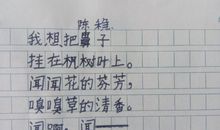 陈稳
我想把鼻子
挂在树叶上。
闻闻花的芬芳,
嗅嗅草的清香。
闻啊,闻——